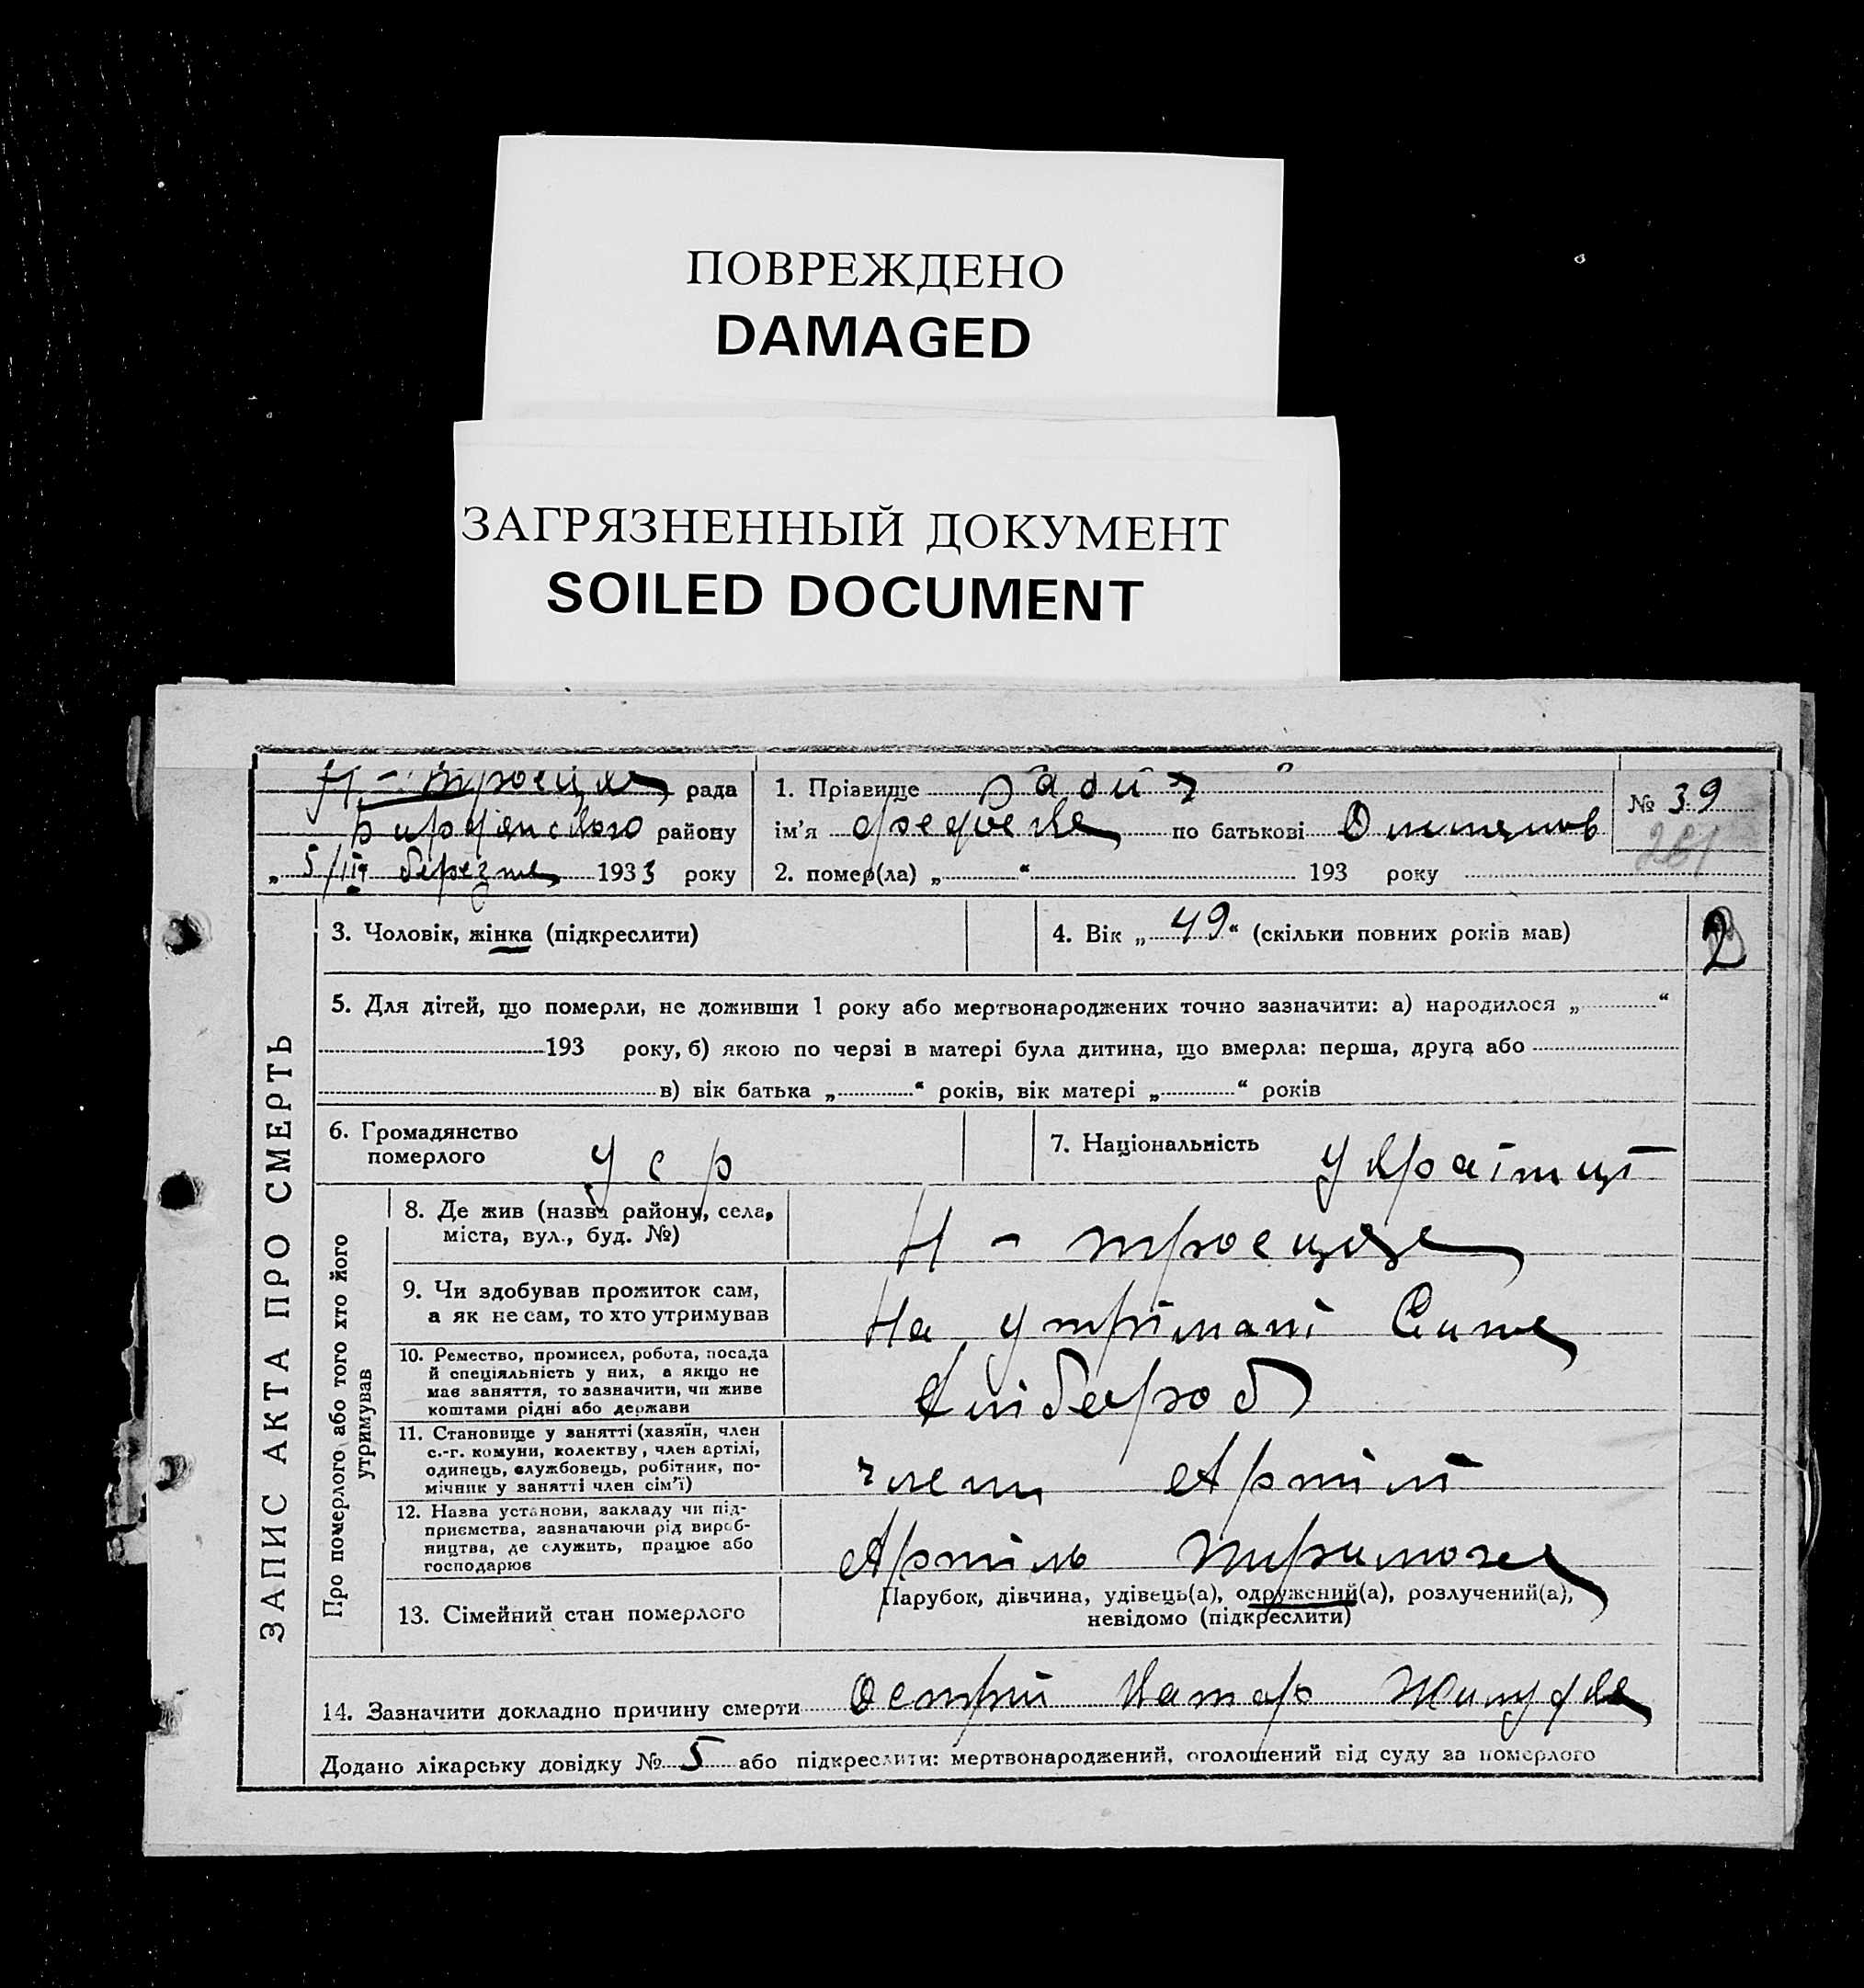 ПОВРЕЖДЕНО
DAMAGED
ЗАГРЯЗНЕННЫЙ ДОКУМЕНТ
SOILED DOCUMENT
Н - Троецка рада
району
„ 5/III березня 1933 року
1. Прізвище
ім’я по батькові
2. помер(ла) „ “ 193 року
№ 39
281
ЗАПИС АКТА ПРО СМЕРТЬ
3. Чоловік, жінка (підкреслити)
4. Вік „ 49 “ (скільки повних років мав)
2
5. Для дітей, що померли, не доживши 1 року або мертвонароджених точно зазначити: а) народилося „ “
193 року, б) якою по черзі в матері була дитина, що вмерла: перша, друга або
в) вік батька „ “ років, вік матері „ “ років
6. Громадянство
померлого
У С Р
7. Національність Україц
Про померлого або того хто його
утримував
8. Де жив (назва району, села,
міста, вул., буд. №)
Н - Троецка
9. Чи здобував прожиток сам,
а як не сам, то хто утримував
На утрімані Сина
10. Ремество, промисел, робота, посада
й спеціяльність у них, а якщо не
має заняття, то зазначити, чи живе
коштами рідні або держави
Хлібароб
11. Становище у занятті (хазяїн, член
с.-г. комуни, колективу, член артілі,
одинець, службовець, робітник, по-
мічник у занятті член сім’ї)
член Артілі
12. Назва установи, закладу чи під-
приємства, зазначаючи рід вироб-
ництва, де служить, працює або
господарює
Артіль
13. Сімейний стан померлого
Парубок, дівчина, удівець(а), одружений(а), розлучений(а),
невідомо (підкреслити)
14. Зазначити докладно причину смерти Острій Катар Жилудка
Додано лікарську довідку № 5 або підкреслити: мертвонароджений, оголошений від суду за померлого